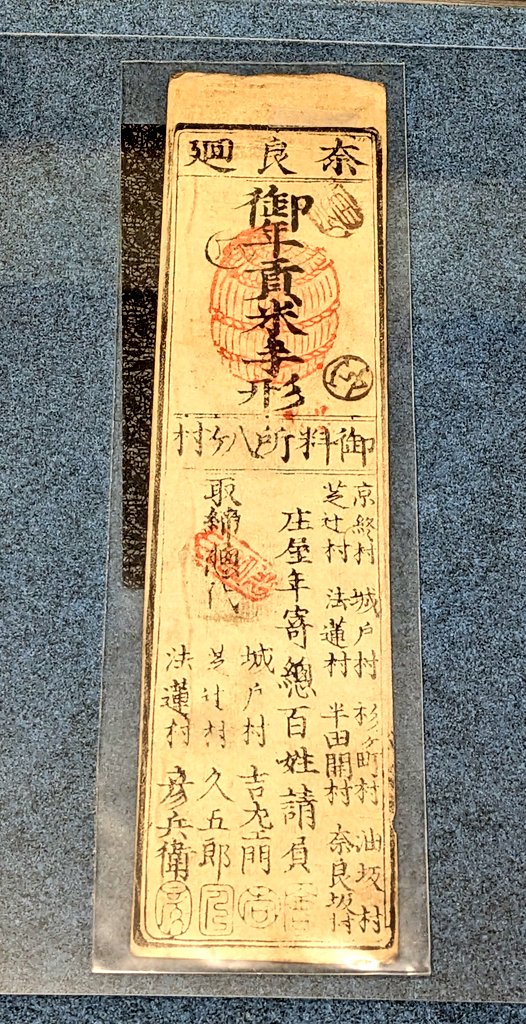 奈良廻
御年貢米手形
御料所八ヶ村
京終村 城戸村 杉ヶ町村 油坂村
芝辻村 法蓮村 半田開村 奈良坂村
庄屋年寄總百姓請負
取締總代
城戸村 吉左衛門
芝辻村 久五郎
法蓮村 彦兵衛